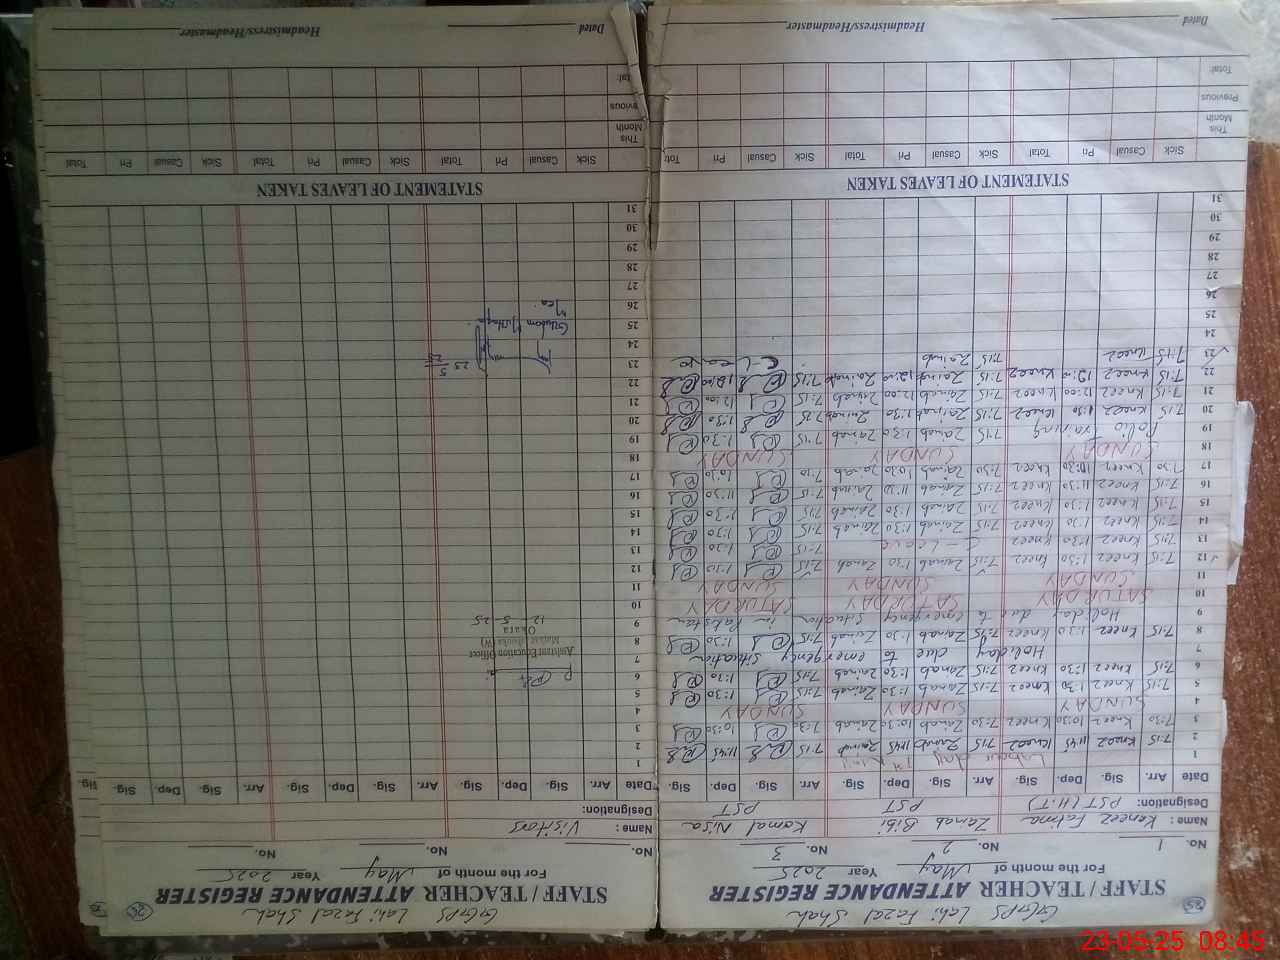 GGPS Lahi Fazal Shah
25
STAFF / TEACHER ATTENDANCE REGISTER
For the month of May Year 2025
No. 1 No. 2 No. 3
Name : Kaneez Fatma Zainab Bibi Kamal Nisa
Designation: PST (H.T) PST PST
Date Arr. Sig. Dep. Sig. Arr. Sig. Dep. Sig. Arr. Sig. Dep. Sig.
1 Labour day 1st
2 7:15 Kneez 11:45 Kneez 7:15 Zainab 11:45 Zainab 7:15 11:45
3 7:30 Kneez 10:30 Kneez 7:30 Zainab 10:30 Zainab 7:30 10:30
4 SUNDAY SUNDAY SUNDAY
5 7:15 Kneez 1:30 Kneez 7:15 Zainab 1:30 Zainab 7:15 1:30
6 7:15 Kneez 1:30 Kneez 7:15 Zainab 1:30 Zainab 7:15 1:30
7 Holiday due to emergency situation
8 7:15 Kneez 1:30 Kneez 7:15 Zainab 1:30 Zainab 7:15 1:30
9 Holiday due to emergency situation in Pakistan
10 SATURDAY SATURDAY SATURDAY
11 SUNDAY SUNDAY SUNDAY
12 7:15 Kneez 1:30 Kneez 7:15 Zainab 1:30 Zainab 7:15 1:30
13 7:15 Kneez 1:30 Kneez C - Leave 7:15 1:30
14 7:15 Kneez 1:30 Kneez 7:15 Zainab 1:30 Zainab 7:15 1:30
15 7:15 Kneez 1:30 Kneez 7:15 Zainab 1:30 Zainab 7:15 1:30
16 7:15 Kneez 11:30 Kneez 7:15 Zainab 11:30 Zainab 7:15 11:30
17 7:30 Kneez 10:30 Kneez 7:30 Zainab 10:30 Zainab 7:30 10:30
18 SUNDAY SUNDAY SUNDAY
19 Polio Training 7:15 Zainab 1:30 Zainab 7:15 1:30
20 7:15 Kneez 1:30 Kneez 7:15 Zainab 1:30 Zainab 7:15 1:30
21 7:15 Kneez 12:00 Kneez 7:15 Zainab 12:00 Zainab 7:15 12:00
22 7:15 Kneez 12:00 Kneez 7:15 Zainab 12:00 Zainab 7:15 12:00
23 7:15 Kneez 7:15 Zainab C Leave
24
25
26
27
28
29
30
31
STATEMENT OF LEAVES TAKEN
Sick Casual Pri Total Sick Casual Pri Total Sick Casual Pri Tot
This Month
Previous
Total:
Dated Headmistress/Headmaster
GGPS Lahi Fazal Shah
26
STAFF / TEACHER ATTENDANCE REGISTER
For the month of May Year 2025
No. No. No.
Name : Visitors
Designation:
Date Arr. Sig. Dep. Sig. Arr. Sig. Dep. Sig. Arr. Sig. Dep. Sig.
1
2
3
4
5
6
7
8
9
Assistant Education Officer
Okara
12-5-25
10
11
12
13
14
15
16
17
18
19
20
21
22
23
23/5/25
24
25
Ghulam
26
27
28
29
30
31
STATEMENT OF LEAVES TAKEN
Sick Casual Pri Total Sick Casual Pri Total Sick Casual Pri Total
This Month
evious
tal:
Dated Headmistress/Headmaster
23-05-25 08:45